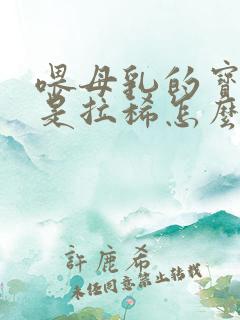 喂母乳的寶
是拉稀怎麼
許鹿希
未经同意禁止转载